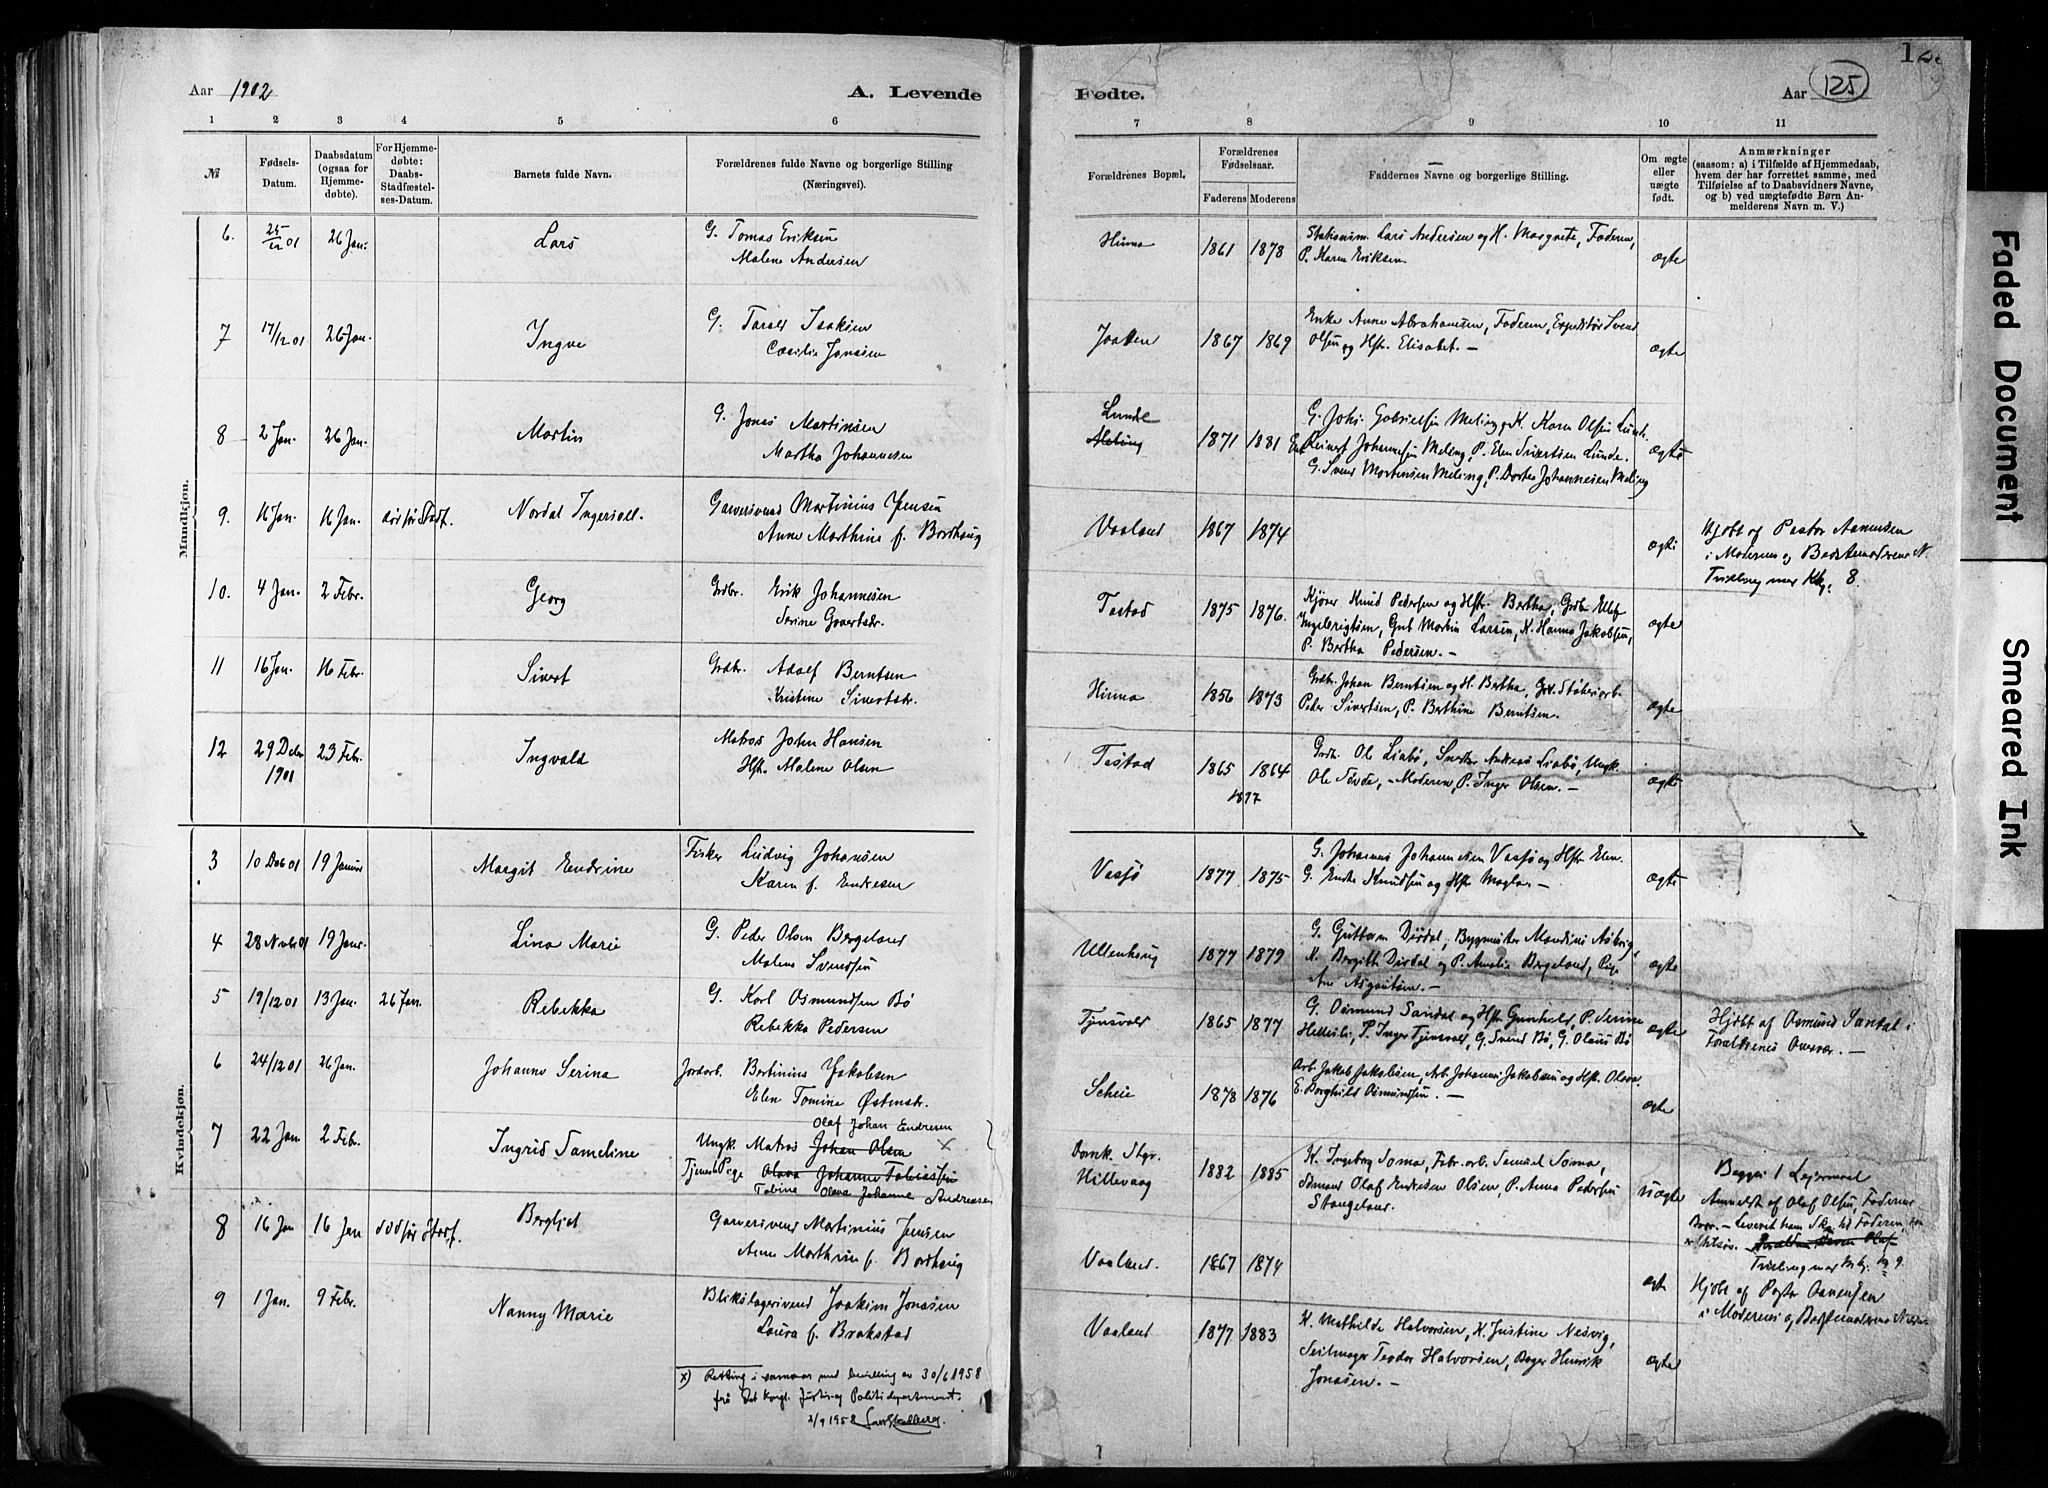 Aar 1902
A. Levende
Fødte.
Aar 125
1 2 3 4 5 6 7 8 9 10 11
№
Fødsels-Datum.
Daabsdatum (ogsaa for Hjemme-døbte).
For Hjemme-døbte: Daabs-Stadfæstel-ses-Datum.
Barnets fulde Navn.
Forældrenes fulde Navne og borgerlige Stilling (Næringsvei).
Forældrenes Bopæl.
Forældrenes Fødselsaar.
Faderens Moderens
Faddernes Navne og borgerlige Stilling.
Om ægte eller uægte født.
Anmærkninger
(saasom: a) i Tilfælde af Hjemmedaab, hvem der har forrettet samme, med Tilføielse af to Daabsvidners Navne, og b) ved uægtefødte Børn Anmelderens Navn m. V.)
Mandkjøn.
6. 25/12 01 26 Jan. Lars G. Tomas Eriksen
Malene Andersen
Hinna 1861 1878 Lars Andersen og H. Margrete, Faderen,
P. Karen Eriksen. ægte
7 17/12 01 26 Jan. Ingve G. Tarald Isaksen
Cæcilie Jonsen
Jaatten 1867 1869 Enke Anne Abrahamsen, Faderen, Expeditør Svend
Olsen og Hstr. Elisabet. — ægte
8 2 Jan. 26 Jan. Martin G. Jonas Martinsen
Martha Johannesen
Lunde
Meling 1871 1881 G. Johs. Gabrielsen Meling, K. Karen Olsen Lunde.
Reinert Johannesen Meling, P. Elen Sivertsen Lunde.
G. Svend Mortensen Meling, P. Dortea Johannesen Meling ægte
9. 16 Jan. 16 Jan. død før Stadf. Nordal Ingersoll. Garversvend Martinius Jensen
Anne Marthine f. Borthaug
Vaaland 1867 1874 ægte
Hjdbt af Pastor Aanensen
i Moderens og Bedstemoderens N.
Tvilling mar Kkj. 8.
10. 4 Jan. 2 Febr. Georg Grdbr. Erik Johannesen
Serine Govertsdr.
Tastad 1875 1876. Kjører Knud Pedersen og Hstr. Bertha, Grdbr. Ellef
Ingebrigtsen, Gut Martin Larsen, K. Hanna Jakobsen,
P. Bertha Pedersen. — ægte
11 16 Jan. 16 Febr. Sivert Grdbr. Adolf Berntsen
Kristine Sivertsdr.
Hinna 1856 1873 Grdbr. Johan Berntsen og H. Bertha,
Peder Sivertsen, P. Berthine Berntsen. ægte
12 29 Dcbr 1901 23 Febr. Ingvald Matros John Hansen
Hstr. Malene Olsen
Tastad 1865 1864
1897
Grdbr. Ole Liabø, Andreas Liabø, Ungk.
Ole Tøvde, Moderen, P. Inger Olsen. — ægte
Kvindekjøn.
3 10 Dcb 01 19 Januar Margit Endrine Fisker Ludvig Johansen
Karen f. Endresen
Vasjø 1877 1875 G. Johannes Johannesen Vasjø og Hstr. Elen.
G. Endre Knudsen og Hstr Magla. — ægte
4 28 Nvbr 01 19 Janr. Lina Marie G. Peder Olsen Bergeland
Malene Svendsen
Ullenhaug 1877 1879 G. Guttorm Dirdal, Bygmester Mandius Askvig,
K. Bergitte Dirdal og P. Amalie Bergeland, Pige
Ane Asgautsen. — ægte
5 19/12 01 13 Jan. 26 Jan. Rebekka G. Karl Osmundsen Bø
Rebekka Pedersen
Tjensvold 1865 1877 G. Osmund Sandal og Hstr Gunhild, P. Serine
Hellesli, P. Inger Tjensvold, G. Svend Bø, G. Olaus Bø ægte
Hjdbt af Osmund Sandal i
Forældrenes Overvær. —
6 24/12 01 26 Jan. Johanne Serina Jordarb. Bertinius Jakobsen
Elen Tomine Østensdr.
Scheie 1878 1876 Arb. Jakob Jakobsen, Arb. Johannes Jakobsen og Hstr. Olava.
E. Borghild Osmundsen. — ægte
7 22 Jan 2 Febr. Ingrid Tomeline
Olaf Johan Endresen
Ungk. Matros Johan Olsen x
Tjenestepige Olava Johanne Tobiassen
Tobine Olava Johanne Andreasen
Domk. Sgr.
Hillevaag 1882 1885 K. Ingeborg Soma, Fabr. arb. Samuel Soma,
Sømand Olaf Endresen Olsen, P. Anna Pedersen
Stangeland. uægte
Begges 1 Leiermaal
Anmeldt af Olaf Olsen, Faderens
Bror. —
8 16 Jan 16 Jan død før Stadf. Bergljot Garversvend Martinius Jensen
Anne Marthine f. Borthaug
Vaaland. 1867 1874 ægte
Tvilling mar Mkj. № 9.
Hjdbt af Pastor Aanensen
i Moderens og Bedstemoderens
9 1 Jan. 9 Febr. Nanny Marie Blikslagersvend Joakim Jonasen
Laura f. Brakstad
Vaaland 1877 1883 K. Mathilde Halvorsen, K. Justine Nesvig,
Seilmager Teodor Halvorsen, Bager Henrik
Jonasen. — ægte
x) Retting i samsvar med bevilling av 30/6 1958
frå Det kongl. Justis og Politidepartement.
2/9 1958
Faded Document
Smeared Ink